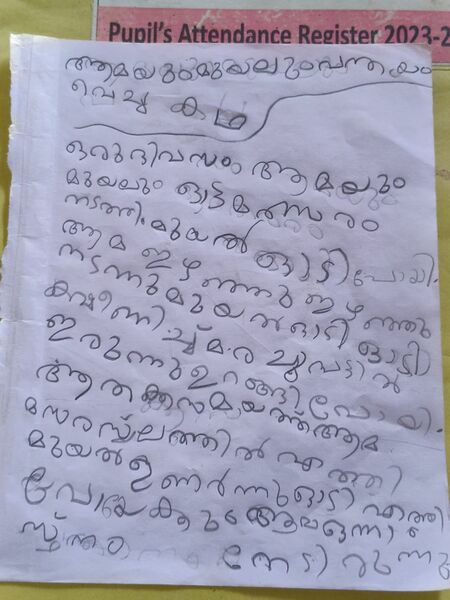 Pupil's Attendance Register 2023-2
ആമയും മുയലും പന്തയം
വെച്ച കഥ
ഒരു ദിവസം ആമയും
മുയലും ഓട്ടമത്സരം
നടത്തി. മുയൽ ഓടി പോയി.
ആമ ഇഴഞ്ഞു ഇഴഞ്ഞു
നടന്നു മുയൽ ഓടി ഓടി
ക്ഷീണിച്ച് മരച്ചുവട്ടിൽ
ഇരുന്നു ഉറങ്ങി പോയി.
ആ തക്കസമയത്ത് ആമ
മത്സരസ്ഥലത്തിൽ എത്തി
മുയൽ ഉണർന്നു ഓടി എത്തി
പോയേക്കും ആമ ഒന്നാം
സ്ഥാനം നേടിരുന്നു